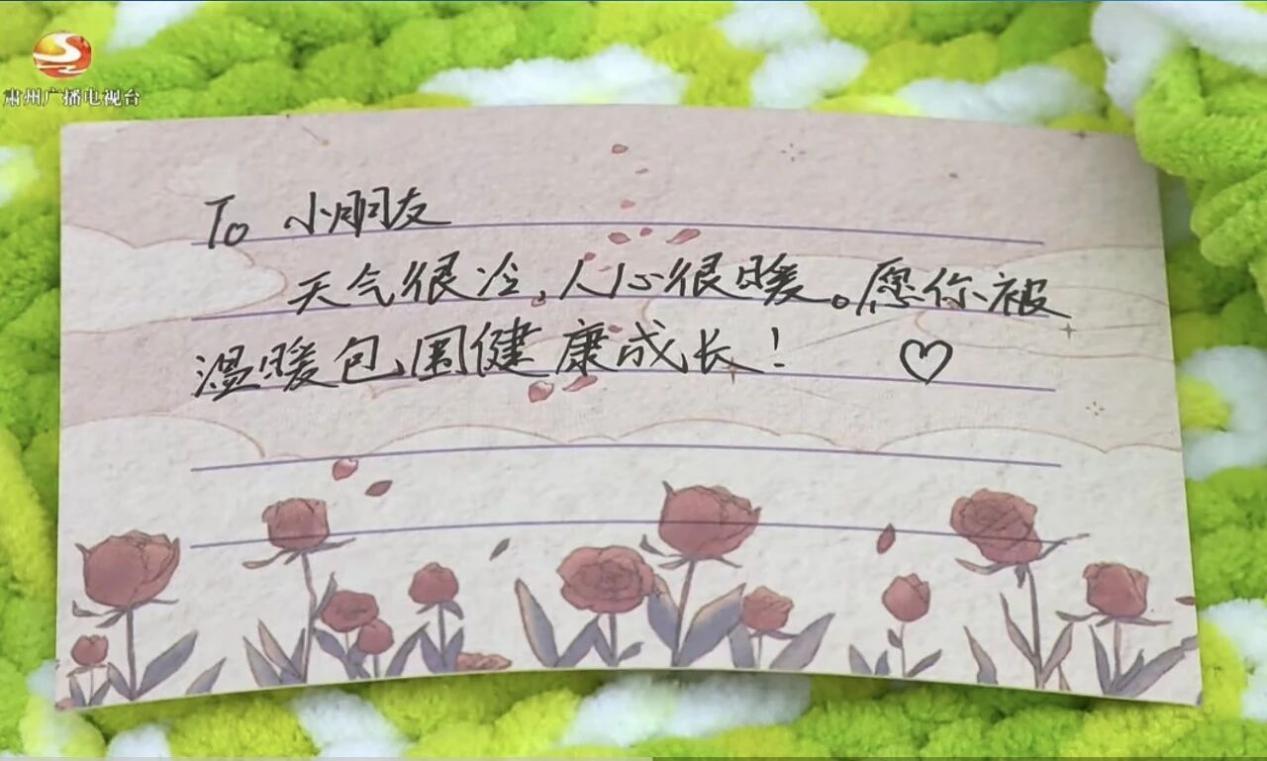 肃州广播电视台
To 小朋友
天气很冷,人心很暖。愿你被
温暖包围健康成长!